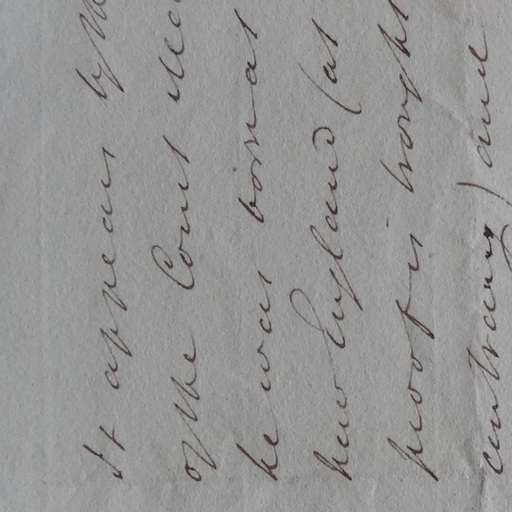 It appears by the
of the Court
he was born at
New England (at
proof is brought
contrary) and